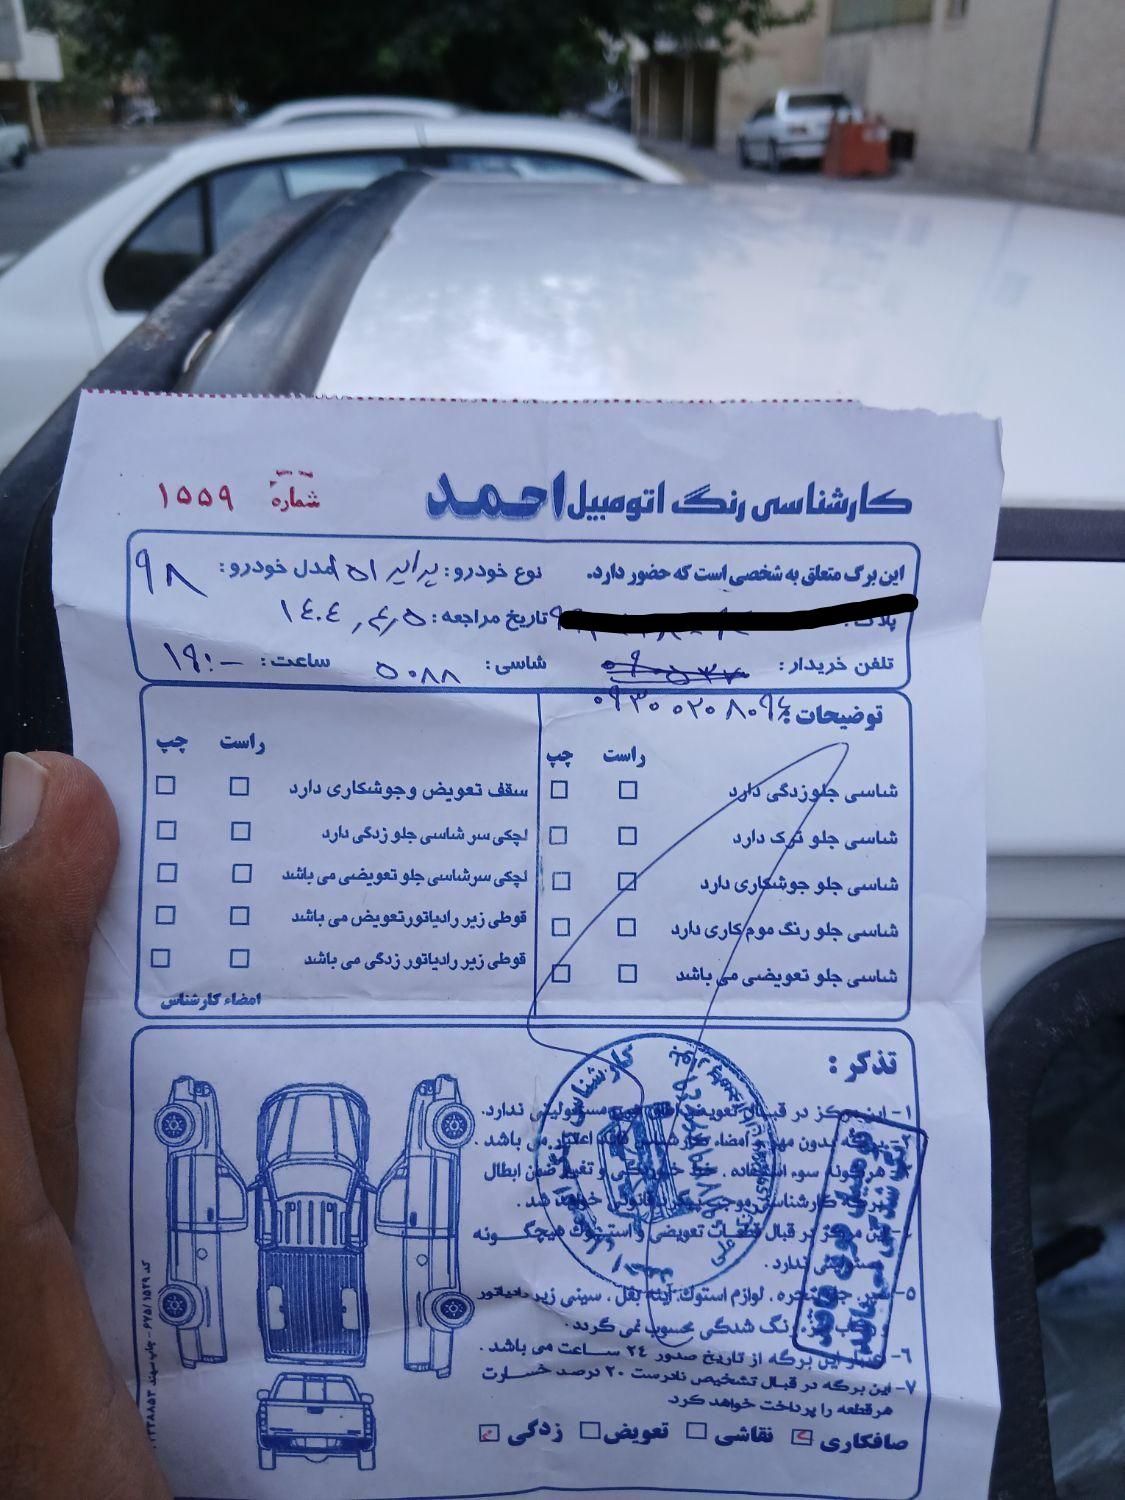 کارشناسی رنگ اتومبیل احمد
شماره ۱۵۵۹
این برگ متعلق به شخصی است که حضور دارد.
نوع خودرو: پراید ۱۵۱ مدل خودرو: ۹۸
پلاک:
تاریخ مراجعه: ۱۴۰۴,۴,۵
تلفن خریدار:
شاسی: ۵۰۸۸ ساعت: ۱۹:۰۰
توضیحات:
راست چپ
شاسی جلوزدگی دارد
شاسی جلو ترک دارد
شاسی جلو جوشکاری دارد
شاسی جلو رنگ موم کاری دارد
شاسی جلو تعویضی می باشد
راست چپ
سقف تعویض وجوشکاری دارد
لچکی سر شاسی جلو زدگی دارد
لچکی سرشاسی جلو تعویضی می باشد
قوطی زیر رادیاتورتعویض می باشد
قوطی زیر رادیاتور زدگی می باشد
امضاء کارشناس
تذکر:
۱- این مرکز در قبال تعویض مسئولیتی ندارد.
بدون مهر و امضاء کارشناسی فاقد اعتبار می باشد.
هرگونه سوء استفاده، خط خوردگی و تغییر ضمن ابطال
کارشناسی موجب پیگرد قانونی خواهد شد.
این مرکز در قبال قطعات تعویضی و استوک هیچگونه
ندارد.
۵- سپر، جلو پنجره، لوازم استوک، آینه بغل، سینی زیر رادیاتور
رنگ شدگی محسوب نمی گردد.
۶- اعتبار این برگه از تاریخ صدور ۲۴ ساعت می باشد.
۷- این برگه در قبال تشخیص نادرست ۲۰ درصد خسارت
هرقطعه را پرداخت خواهد کرد
صافکاری نقاشی تعویض زدگی